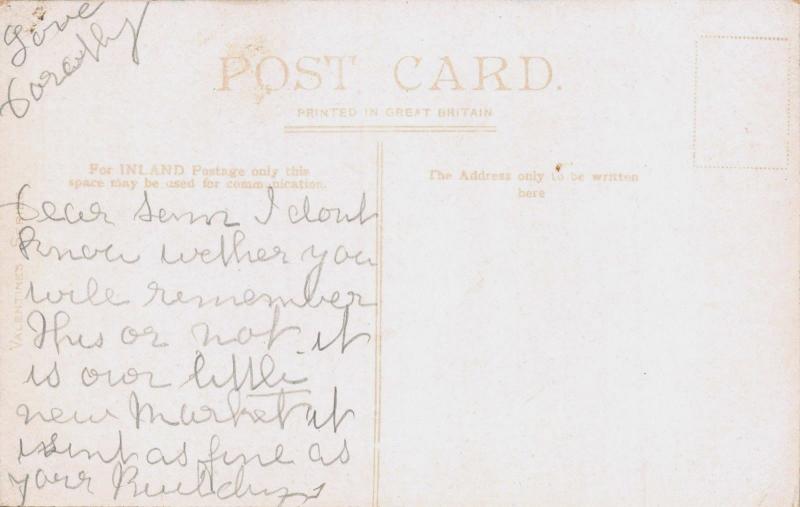 Love
Dorothy
POST CARD.
PRINTED IN GREAT BRITAIN
For INLAND Postage only this
space may be used for communication.
The Address only to be written
here
VALENTINE'S
Dear Sam I dont
know wether you
will remember
This or not it
is our little
new Market it
isent as fine as
your Buildings